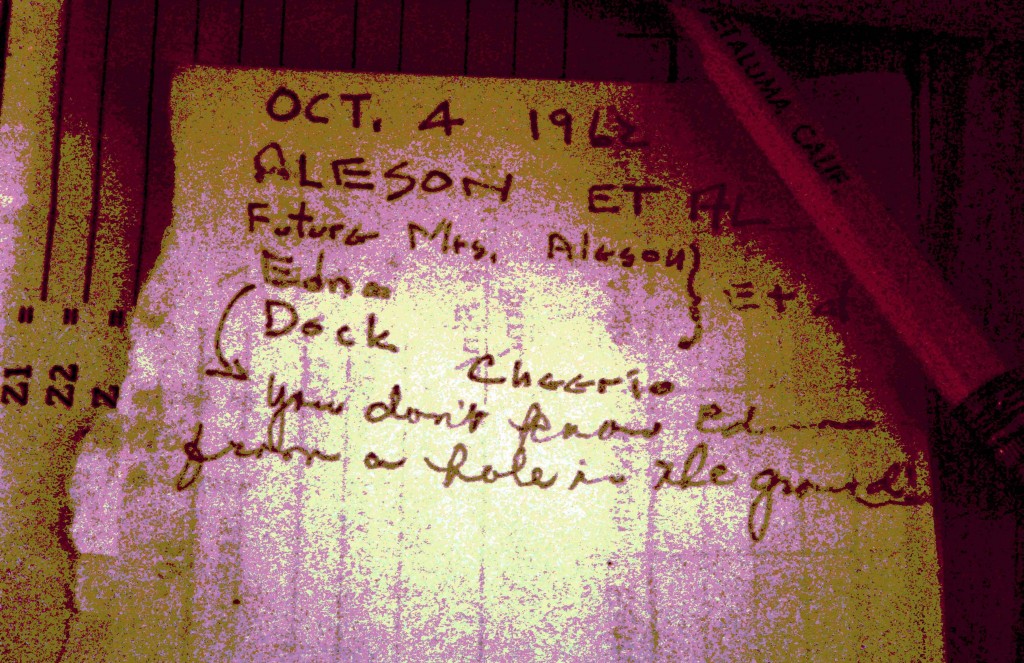 OCT. 4 1962
ALESON ET AL
Future Mrs. Aleson } Et al
Edna
Dock
Cheerio
You don't know Edna
from a hole in the ground
ETALUMA CALIF.
Z1 =
Z2 =
Z =